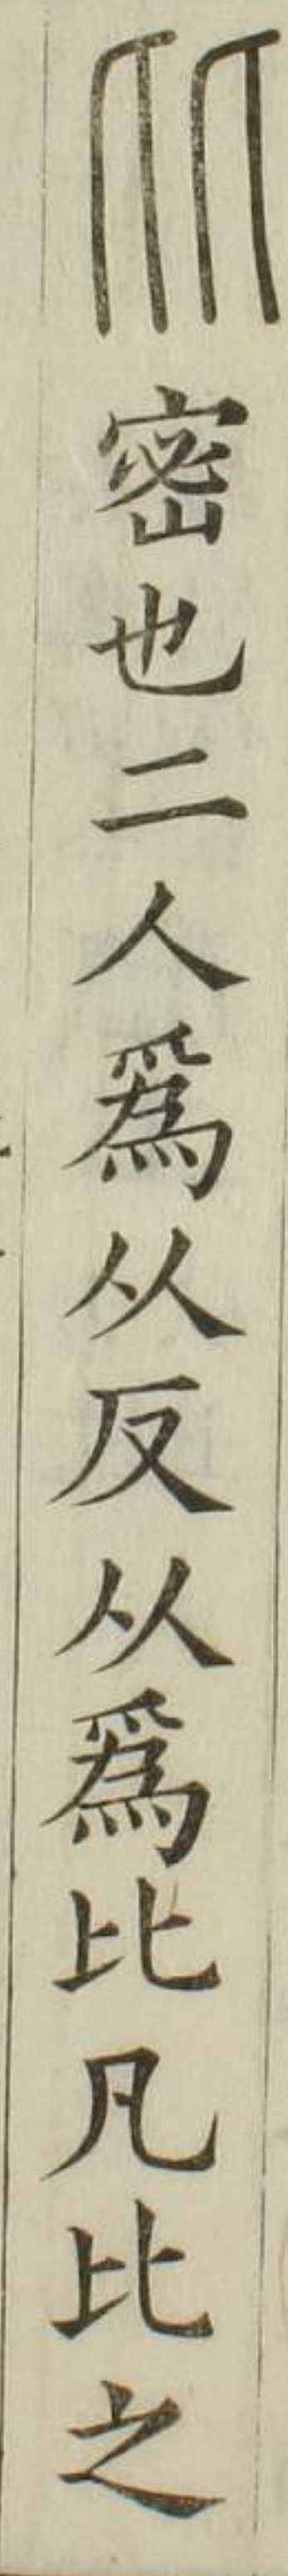 比密也二人爲从反从爲比凡比之